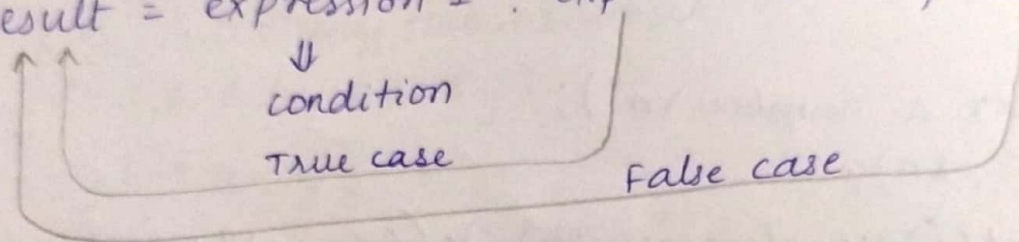 esult = expression
⇓
condition
True case
False case